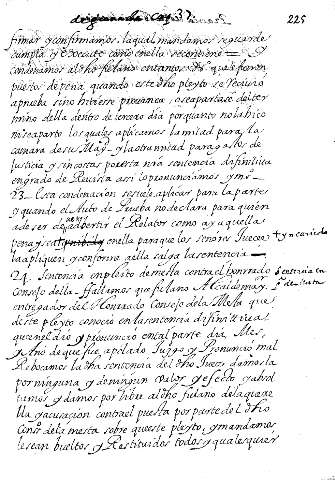 de granada Cap. 37.
225
firmar y confirmamos, la qual mandamos se guarde
cumpla y execute como en ella se contiene
condenamos al dho fulano en tantos que fueron
puestos de pena quando este dho pleyto se recivio
aprueba sino hiciese provanza, o se apartase del ter
mino della dentro de tercero dia por quanto no la hico
ni se aparto las quales aplicamos la mitad para la
camara de su Mag. y la otra mitad para gastos de
Justicia y sin costas por esta nra sentencia difinitiva
en grado de Revista assi lo pronunciamos, y m
23. Esta condenacion se suele aplicar para la parte
y quando el Auto de Prueba no declara para quien
a de ser a de advertir el Relator como ay aquella
pena y en ella para que los señores Jueces
la apliquen y conforme a ella salga la sentencia
24. Sentencia in pleito de mesta contra el honrado
Consejo della fallamos que fulano Alcalde mayor
entregador del Honrado Consejo de la Mesta que
deste pleyto conocio en la sentencia difinitiva
que en el dio y pronuncio en tal parte dia, Mes,
y Año de que fue apelado Juzgo y Pronuncio mal
Rebocamos la dha sentencia del dho Juez, damosla
por ninguna y de ningun valor y efecto y absol
bemos y damos por libre al dho fulano de la quere
lla y acusacion contra el puesta por parte del dho
Conso de la mesta sobre que es este pleyto, y mandamos
le sean bueltos y Restituidos todos y qualesquier